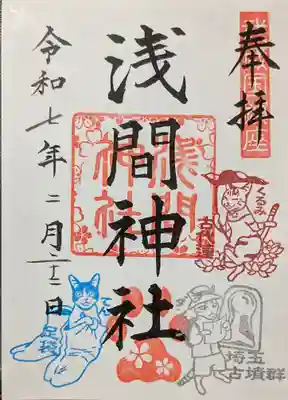 奉拝
浅間神社
令和七年二月二十二日
浅間
神社
くるみ
古代蓮
足袋
埼玉
古墳群